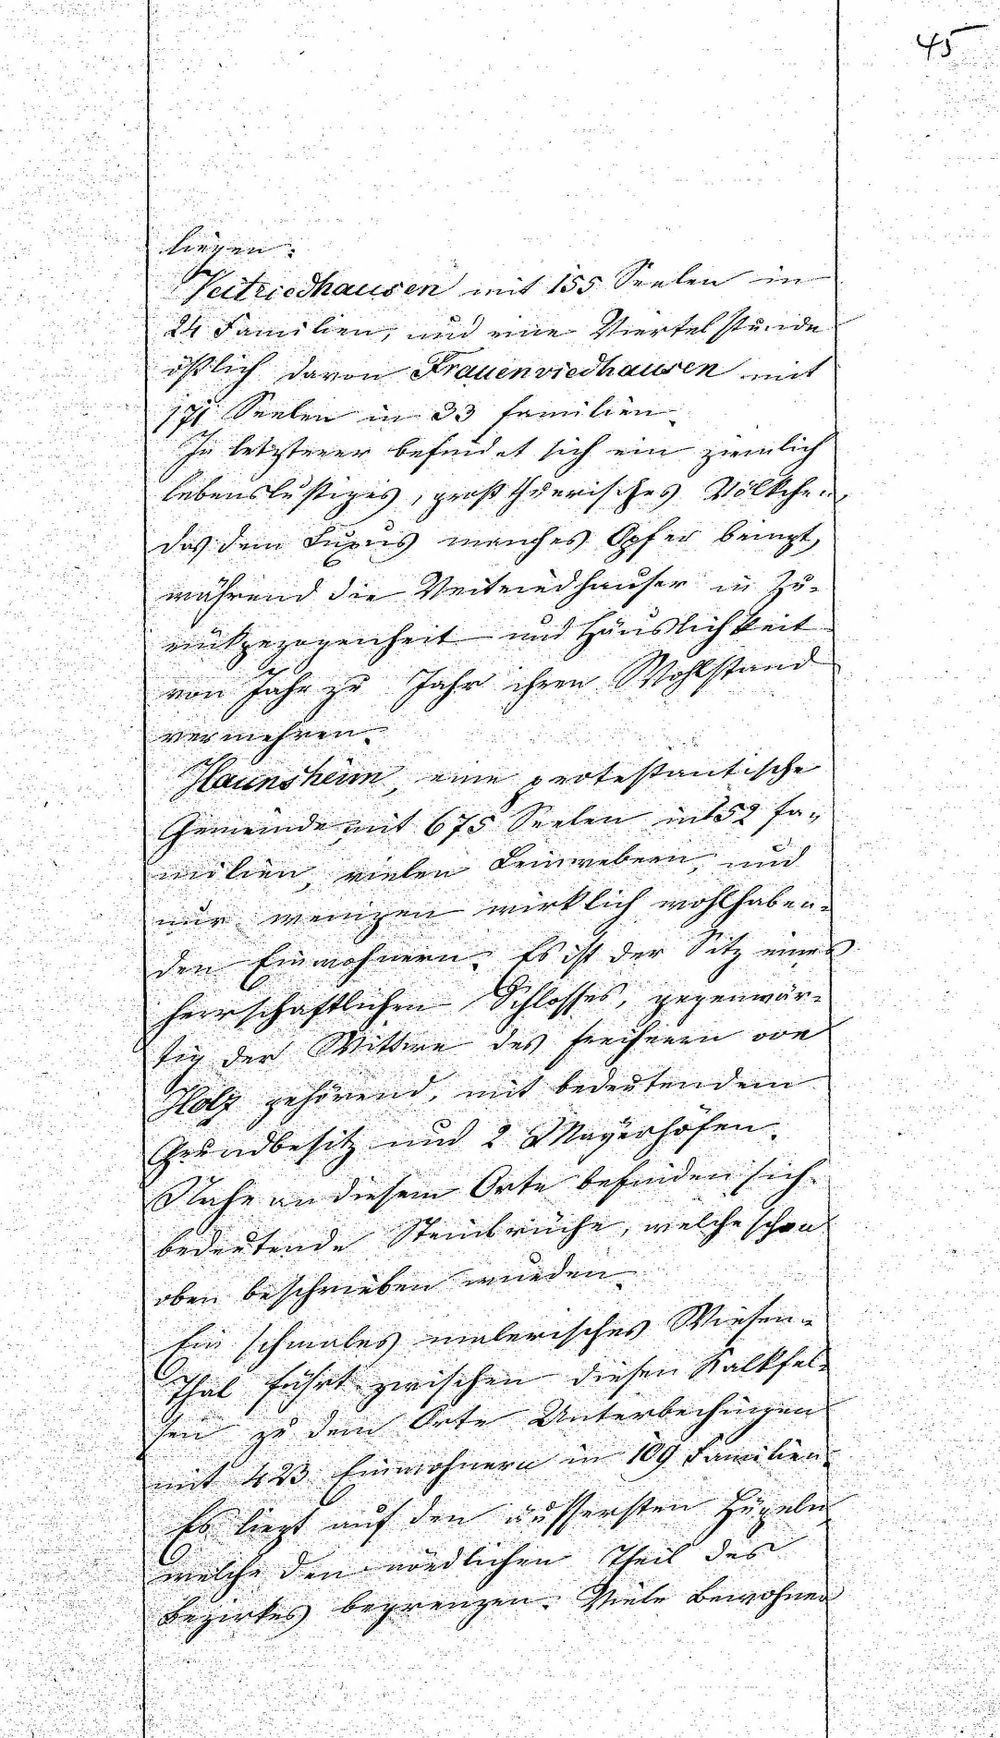 45
liegen.
Veitriedhausen mit 155 Seelen in
24 Familien, und eine Viertelstunde
östlich davon Frauenriedhausen mit
171 Seelen in 33 Familien.
In letzterer befindet sich ein ziemlich
lebenslustiges, großthuerisches Völkchen,
das dem Luxus manches Opfer bringt,
während die Veitriedhauser in Zu-
rückgezogenheit und Häuslichkeit
von Jahr zu Jahr ihren Wohlstand
vermehren.
Haunsheim, eine protestantische
Gemeinde mit 675 Seelen in 152 Fa-
milien, vielen Leinwebern, und
nur wenigen wirklich wohlhaben-
den Einwohnern. Es ist der Sitz eines
herrschaftlichen Schlosses, gegenwär-
tig der Wittwe des Freiherrn von
Holz gehörend, mit bedeutendem
Grundbesitz und 2 Mayerhöfen.
Nahe an diesem Orte befinden sich
bedeutende Steinbrüche, welche schon
oben beschrieben wurden.
Ein schmales malerisches Wiesen-
Thal führt zwischen diesen Kalkfel-
sen zu dem Orte Unterbechingen
mit 423 Einwohnern in 109 Familien.
Es liegt auf den äussersten Hügeln
welche den nördlichen Theil des
Bezirkes begrenzen. Viele Bewohner